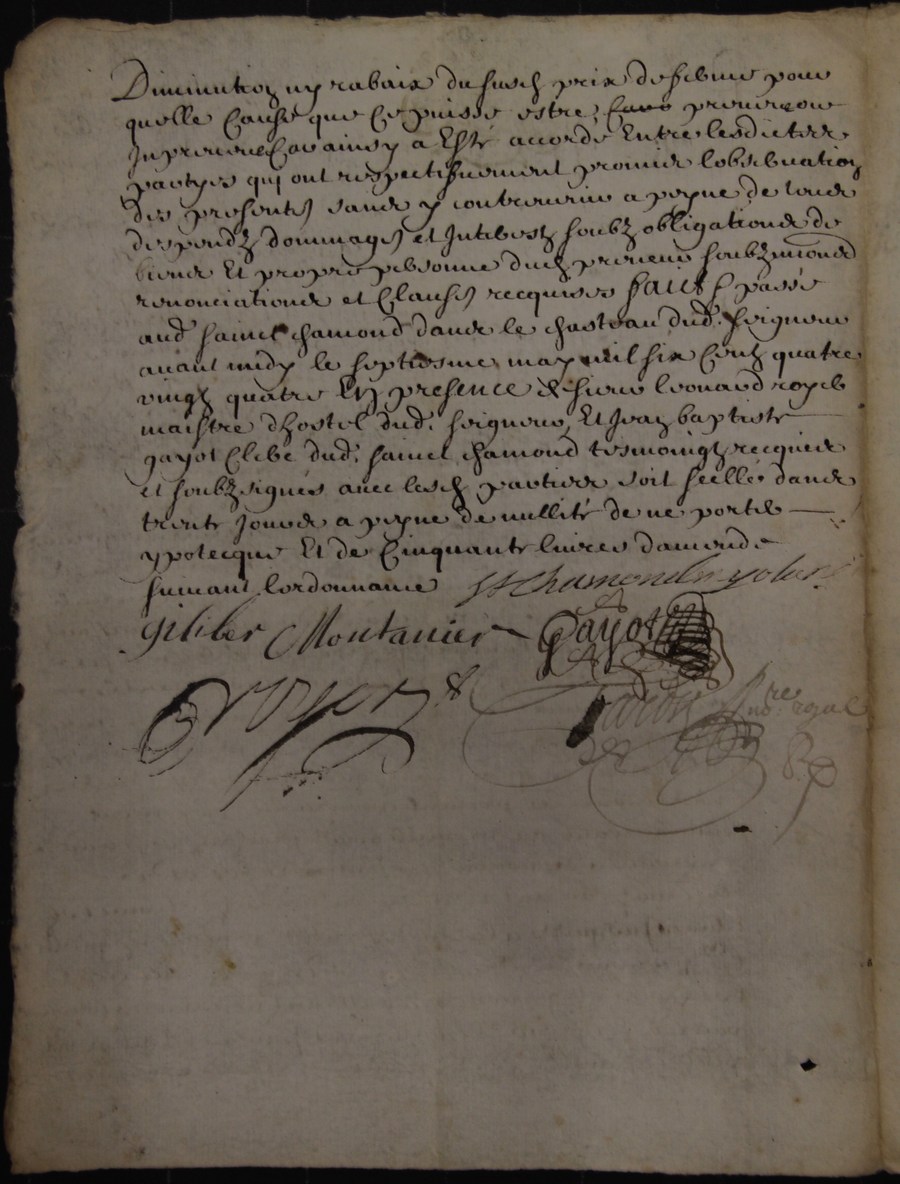 Diminution ny rabaix dususd prix de ferme pour
quelle cause que ce puisse estre, preneurs ou
Car ainsy a Esté accordé Entre lesdictes
partyes qui ont respectivement promis l'observation
des presentes sans y contrevenir a peyne de tous
despendz dommages et Interestz soubz obligations de
biens Et propre personne dud preneur soubzmissions
renonciations et clauses recquises faict & passé
aud sainct chamond dans le chasteau dud. seigneur
avant midy le septiesme may mil six Centz quatre
vingtz quatre En presence de sieur leonard royer
maistre d'hostel dud. seigneur, Et Jean baptiste
gayot Clerc dud. sainct chamond tesmoingtz recquis
et soubzsignés avec lesd parties soit scellé dans
trente Jours a peyne de nullité de ne porter
ypotecque Et de Cinquante livres damende
suivant lordonnance St Chamond
giliber Montanier Gayot
royer